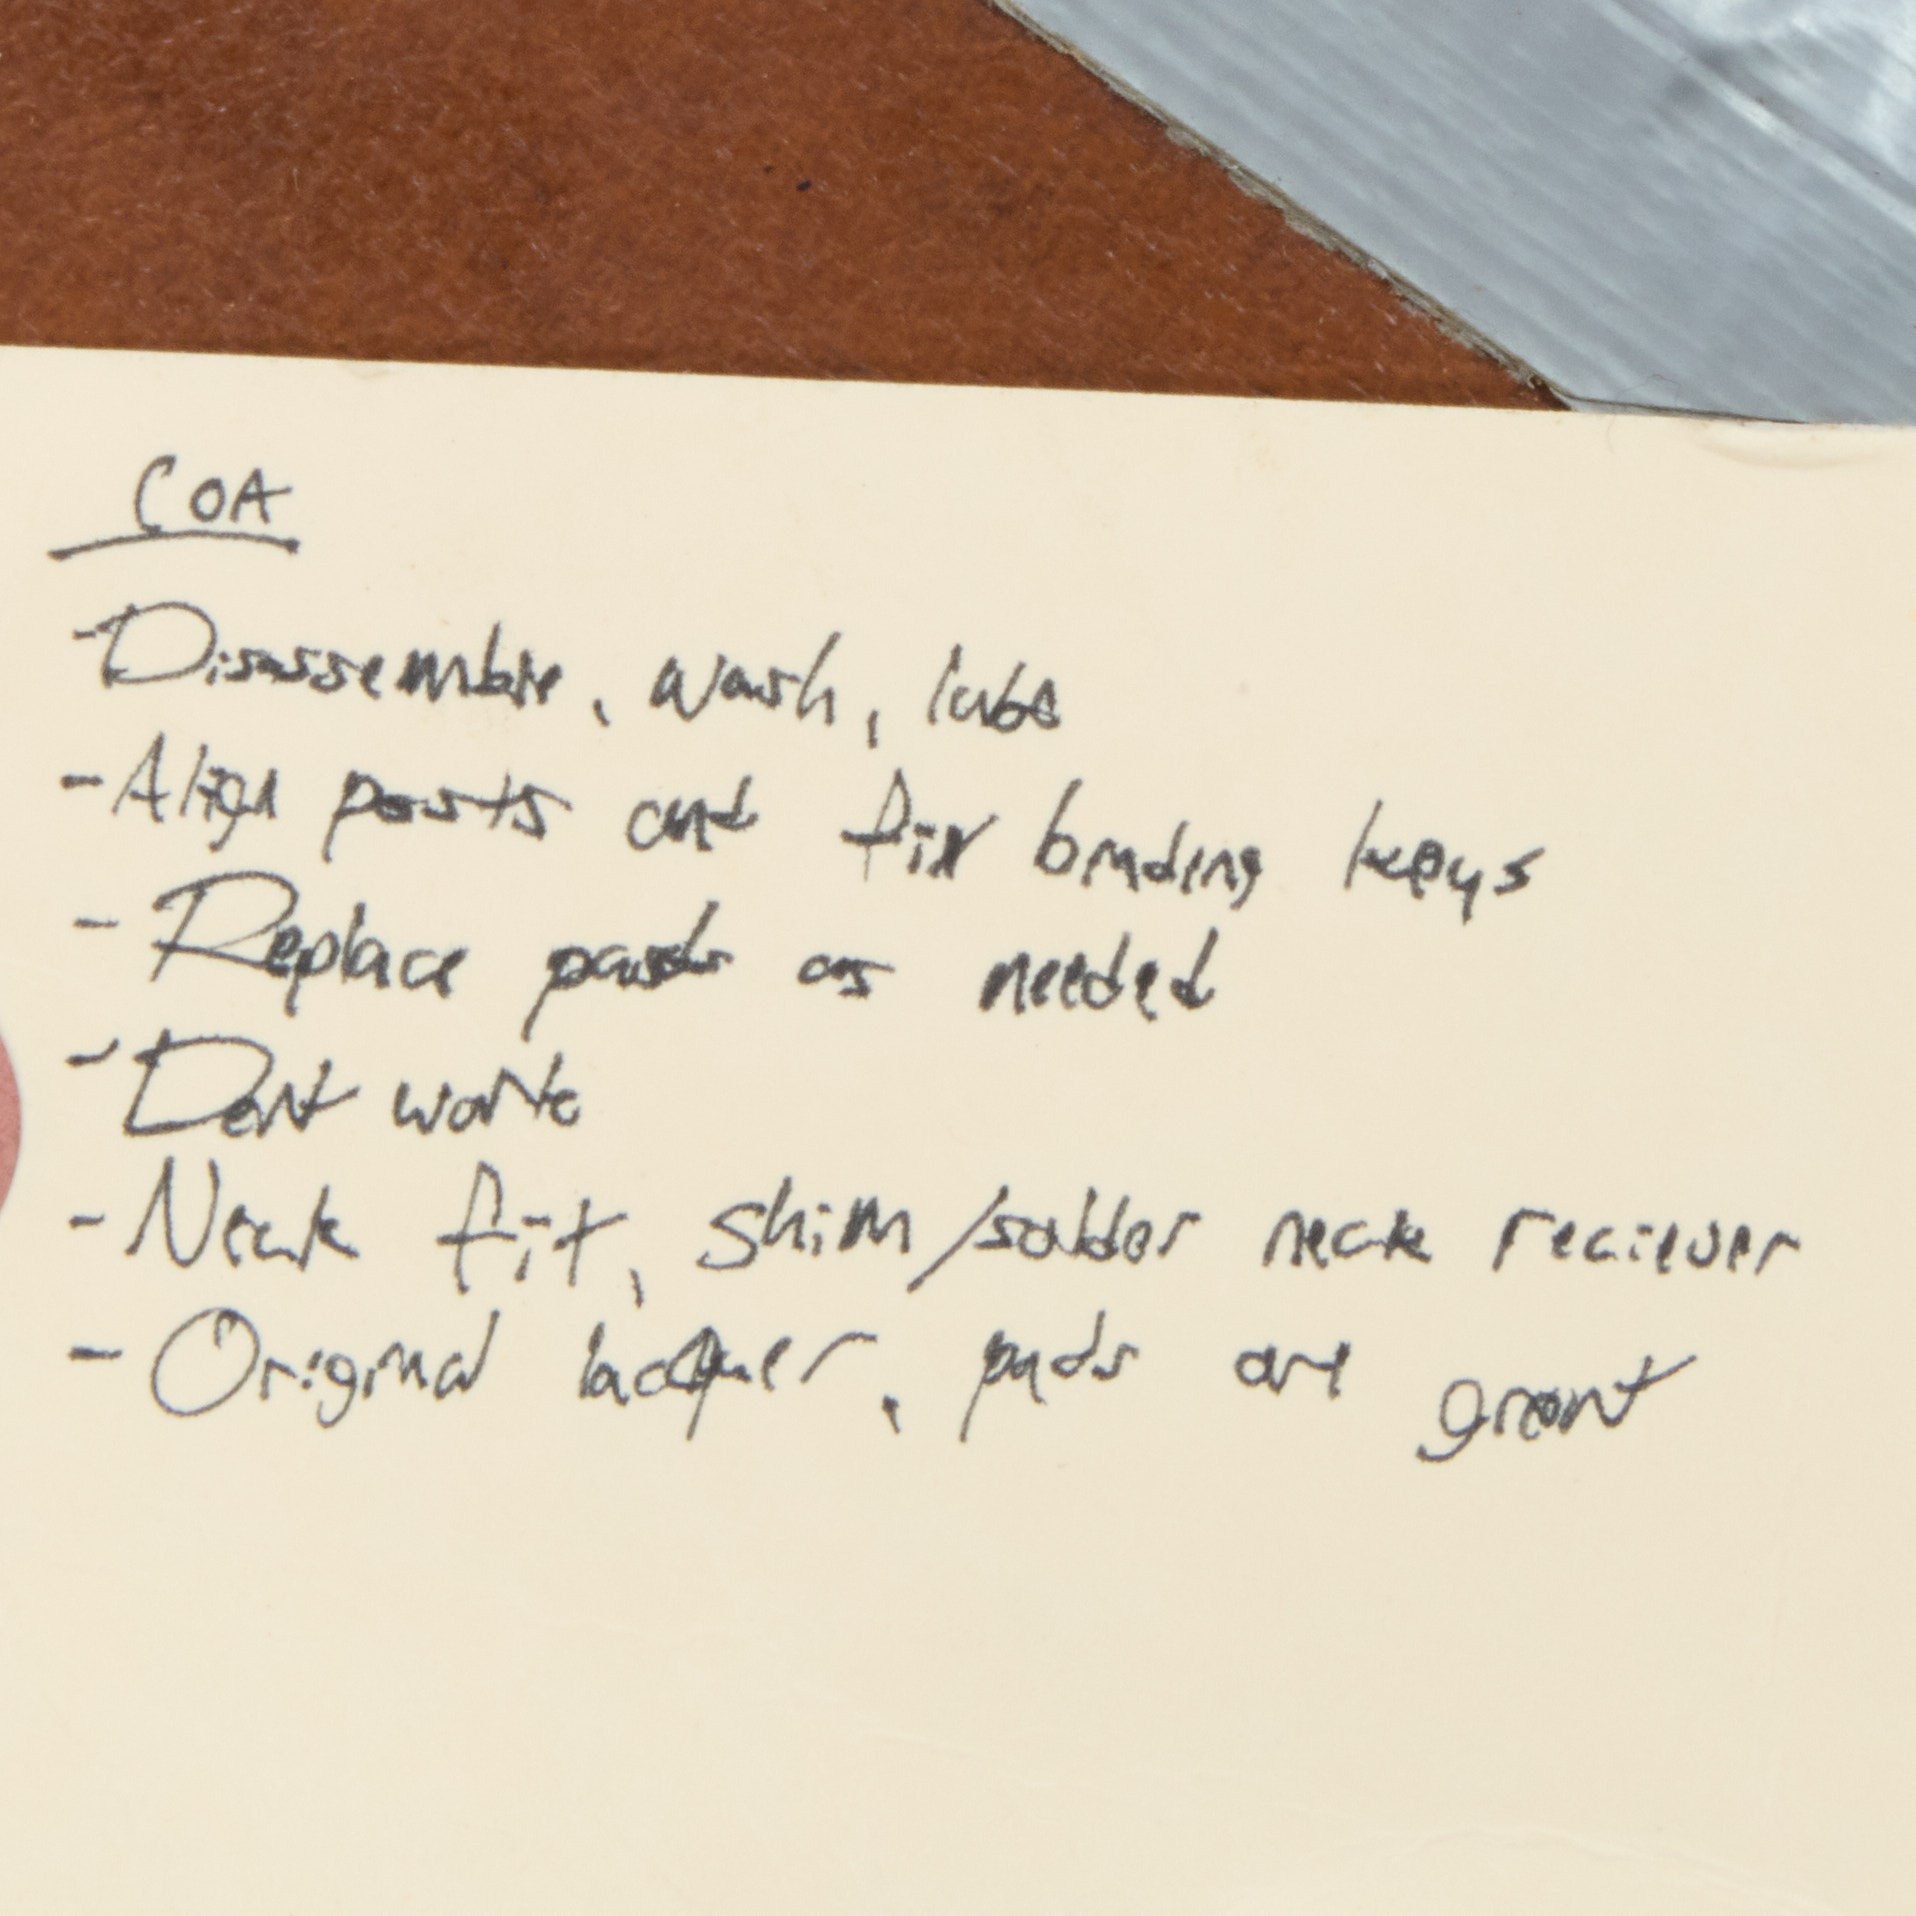 COA
- Disassemble, wash, lube
- Align posts and fix binding keys
- Replace pads as needed
- Dent work
- Neck fit, shim/solder neck reciever
- Original lacquer, pads are great